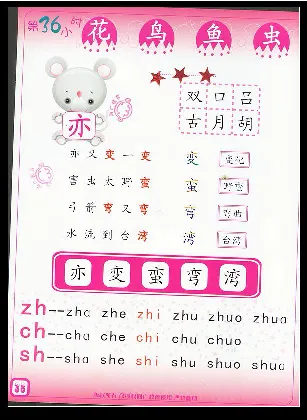 第36小时
花 鸟 鱼 虫
双 口 吕
古 月 胡
亦
亦 又 变 一 变 变 变化
害 虫 太 野 蛮 蛮 野蛮
弓 箭 弯 又 弯 弯 弯曲
水 流 到 台 湾 湾 台湾
亦 变 蛮 弯 湾
zh--zha zhe zhi zhu zhuo zhua
ch--cha che chi chu chuo
sh--sha she shi shu shuo shua
35